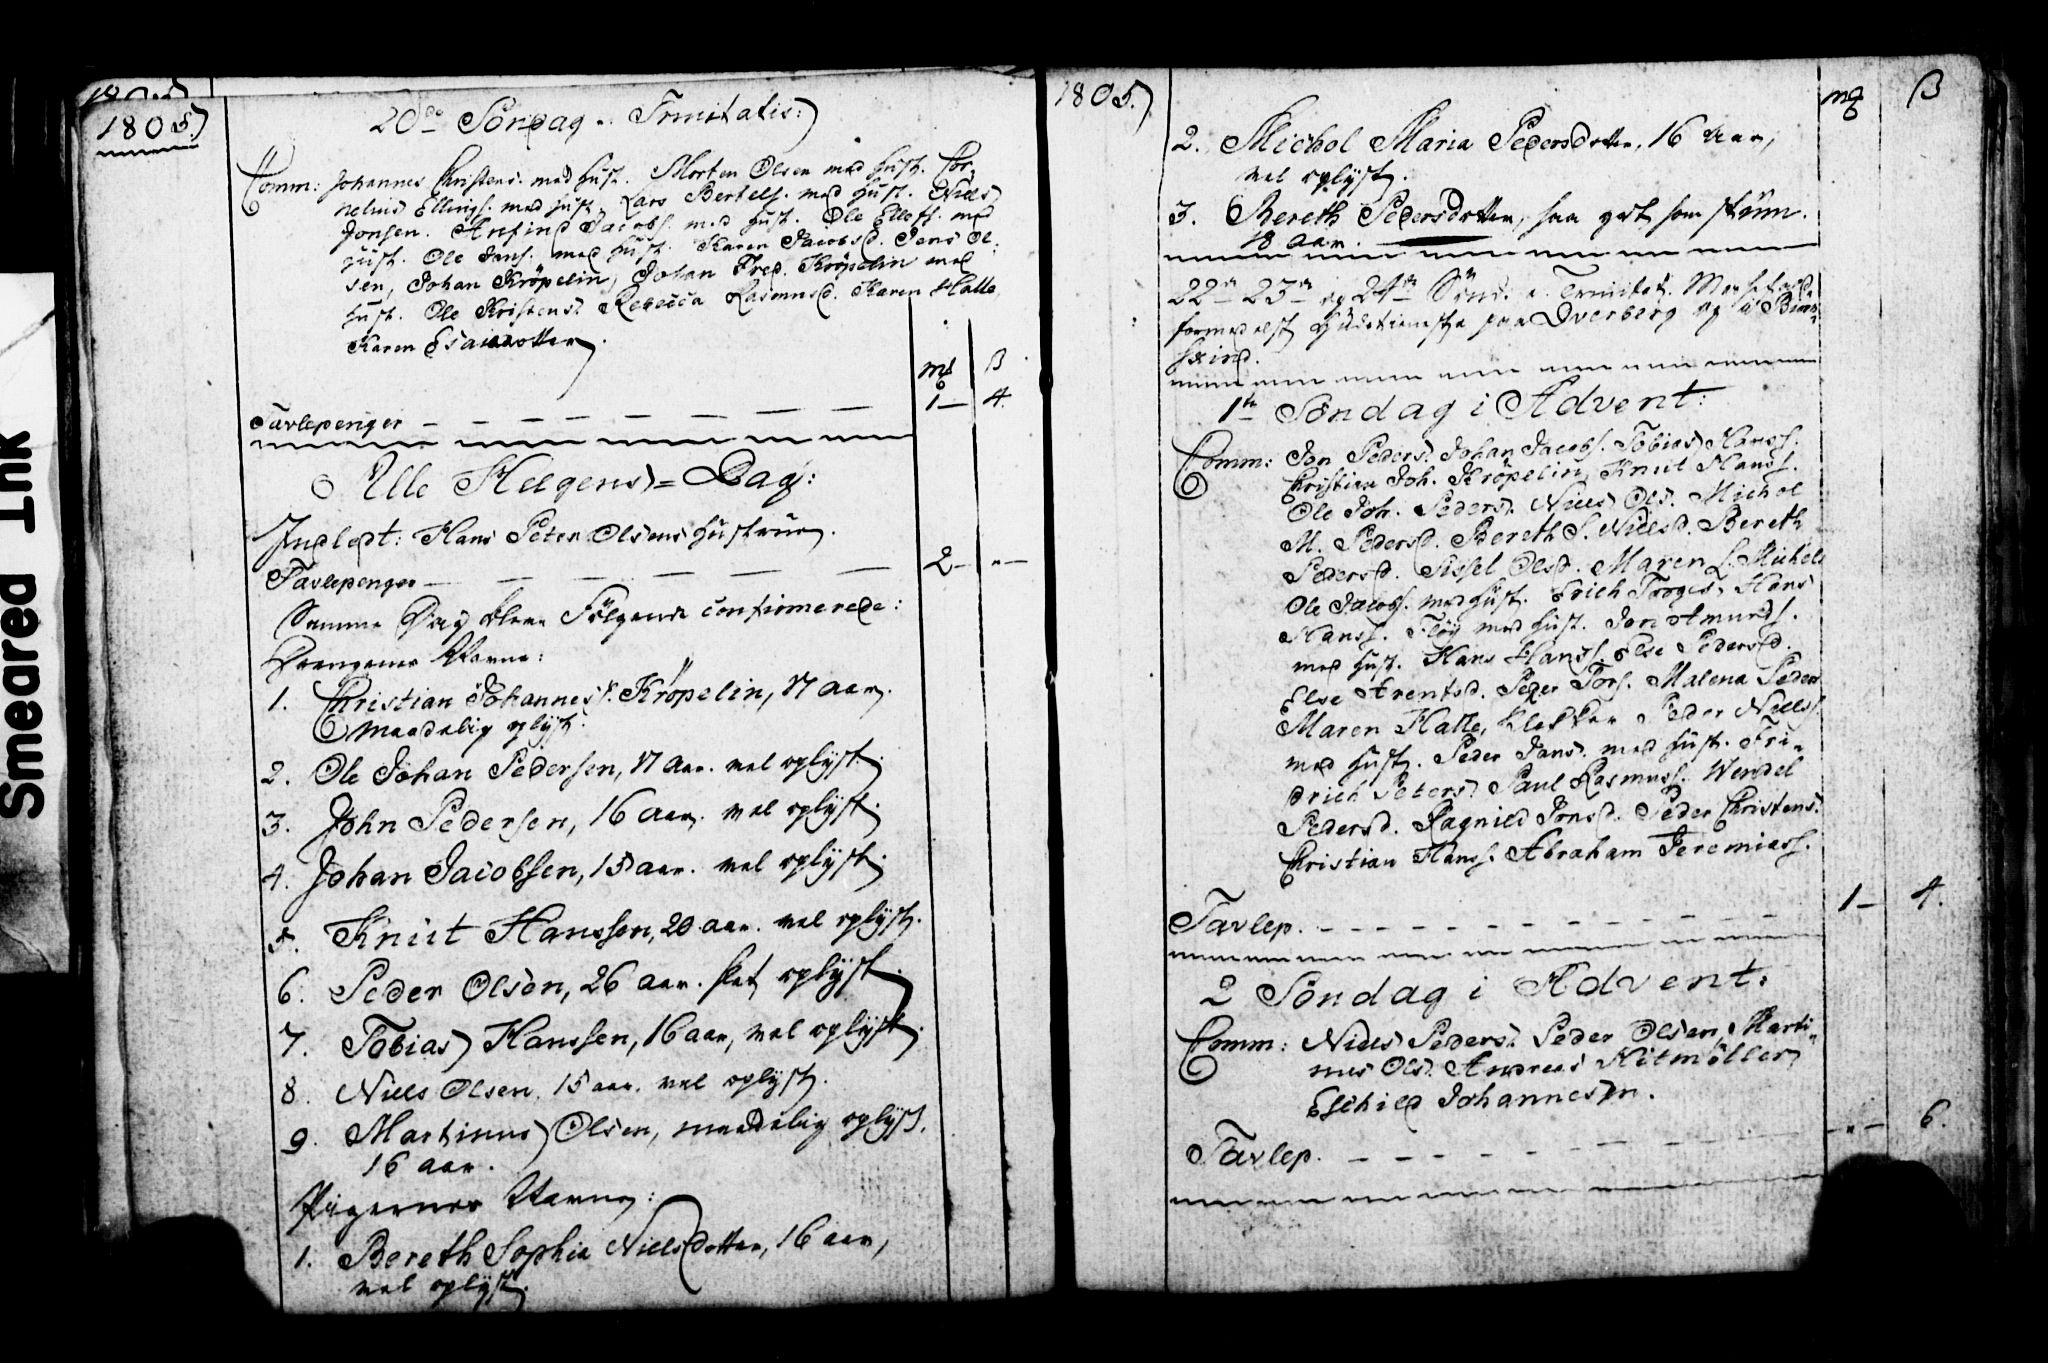 1805.
20de Söndag.. Trinitatis:
Comm: Johannes Christens. med Hust. Morten Olsen med Hust. Cor-
nelius Ellings. med Hust. Lars Bertels. med Hust. Niels
Jonsen. Anfind Jacobs. med Hust. Ole Ellefs. med
Hust. Ole Jans. med Hust. Karen Jacobsd. Jens Ol-
sen, Johan Kröpelin, Johan Fred. Kröpelin med
Hust. Ole Kristens. Rebecca Rasmusd. Karen Halle,
Karen Esaiædotter.
mk ß
Tavlepenger — — — — — 1— 4.
Alle Helgens=Dag:
Indledt: Hans Peter Olsens Hustrue.
Tavlepenger — — — — — 2— "—
Samme Dag bleve Følgende confirmerede:
Drengenes Navne:
1. Christian Johannes s. Kröpelin, 17 aar.
maadelig oplyst.
2. Ole Johan Pedersen, 17 aar. vel oplyst.
3. John Pedersen, 16 aar. vel oplyst.
4. Johan Jacobsen, 15 aar. vel oplyst.
5. Knut Hanssen, 20 aar. vel oplyst.
6. Peder Olsen, 26 aar. slet oplyst.
7. Tobias Hanssen, 16 aar, vel oplyst.
8. Niels Olsen, 15 aar. vel oplyst.
9. Martinus Olsen, maadelig oplyst,
16 aar.
Pigernes Navne:
1. Bereth Sophia Nielsdotter, 16 aar,
vel oplyst.
1805.
mk ß
2. Michol Maria Pedersdotter, 16 aar,
vel oplyst.
3. Bereth Pedersdotter, saa godt som stum.
18 aar.
22de 23de og 24de Sönd. e. Trinitat. Messefald
formedelst Gudstieneste paa Overberg og i
1te Söndag i Advent:
Comm: Jon Peders. Johan Jacobs. Tobias Hanss.
Christian Joh. Kröpelin, Knut Hanss.
Ole Joh. Peders. Niels Ols. Michol
M. Pedersd. Bereth S. Nielsd. Bereth
Pedersd. Sissel Olsd. Maren L. Michels
Ole Jacobs. med Hust. Erich Troges. Hans
Hanss. Fløy med Hust. Jon Amunds.
med Hust. Hans Hanss. Else Pedersd.
Else Arentsd. Peder Tors. Malena Peders
Maren Halle, Klokker Peder Niels.
med Hust. Peder Jans. med Hust. Fri-
drich Peters. Paul Rasmuss. Wendel
Pedersd. Ragnild Jonsd. Peder Christens.
Christian Hanss. Abraham Jeremiass.
Tavlep. — — — — — 1— 4.
2 Söndag i Advent:
Comm: Niels Peders. Peder Olsen, Marti-
nus Ols. Andreas Ritmöller,
Eschild Johannesen.
Tavlep. — — — — — —"— 6.
Smeared Ink